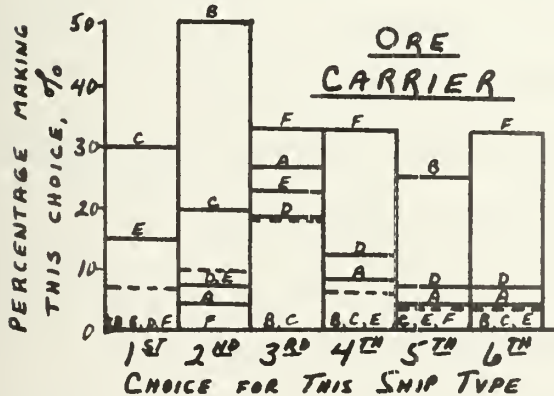 PERCENTAGE MAKING
THIS CHOICE, %
50
40
30
20
10
0
ORE
CARRIER
C
E
B
C
D, E
A
F
F
A
E
D
B, C
F
D
A
B, C, E
B
D
A
C, E, F
F
D
A
B, C, E
1ST 2ND 3RD 4TH 5TH 6TH
CHOICE FOR THIS SHIP TYPE